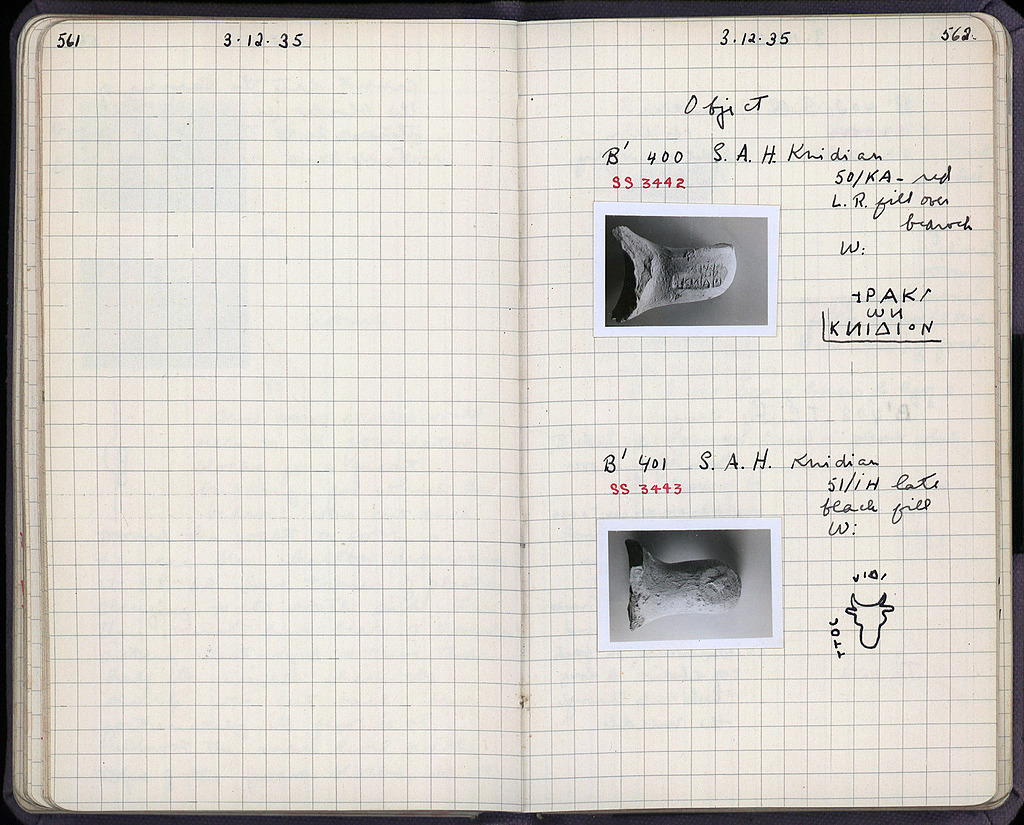 561
3·12·35
3·12·35
562.
Object
B' 400 S. A. H. Knidian
SS 3442
50/KA - red
L. R. fill over
bedrock
W:
ΡΑΚΙ
ωИ
ΚИΙΔΙΟΝ
B' 401 S. A. H. Knidian
SS 3443
51/ΙΗ late
black fill
W:
ΥΙΔΙ